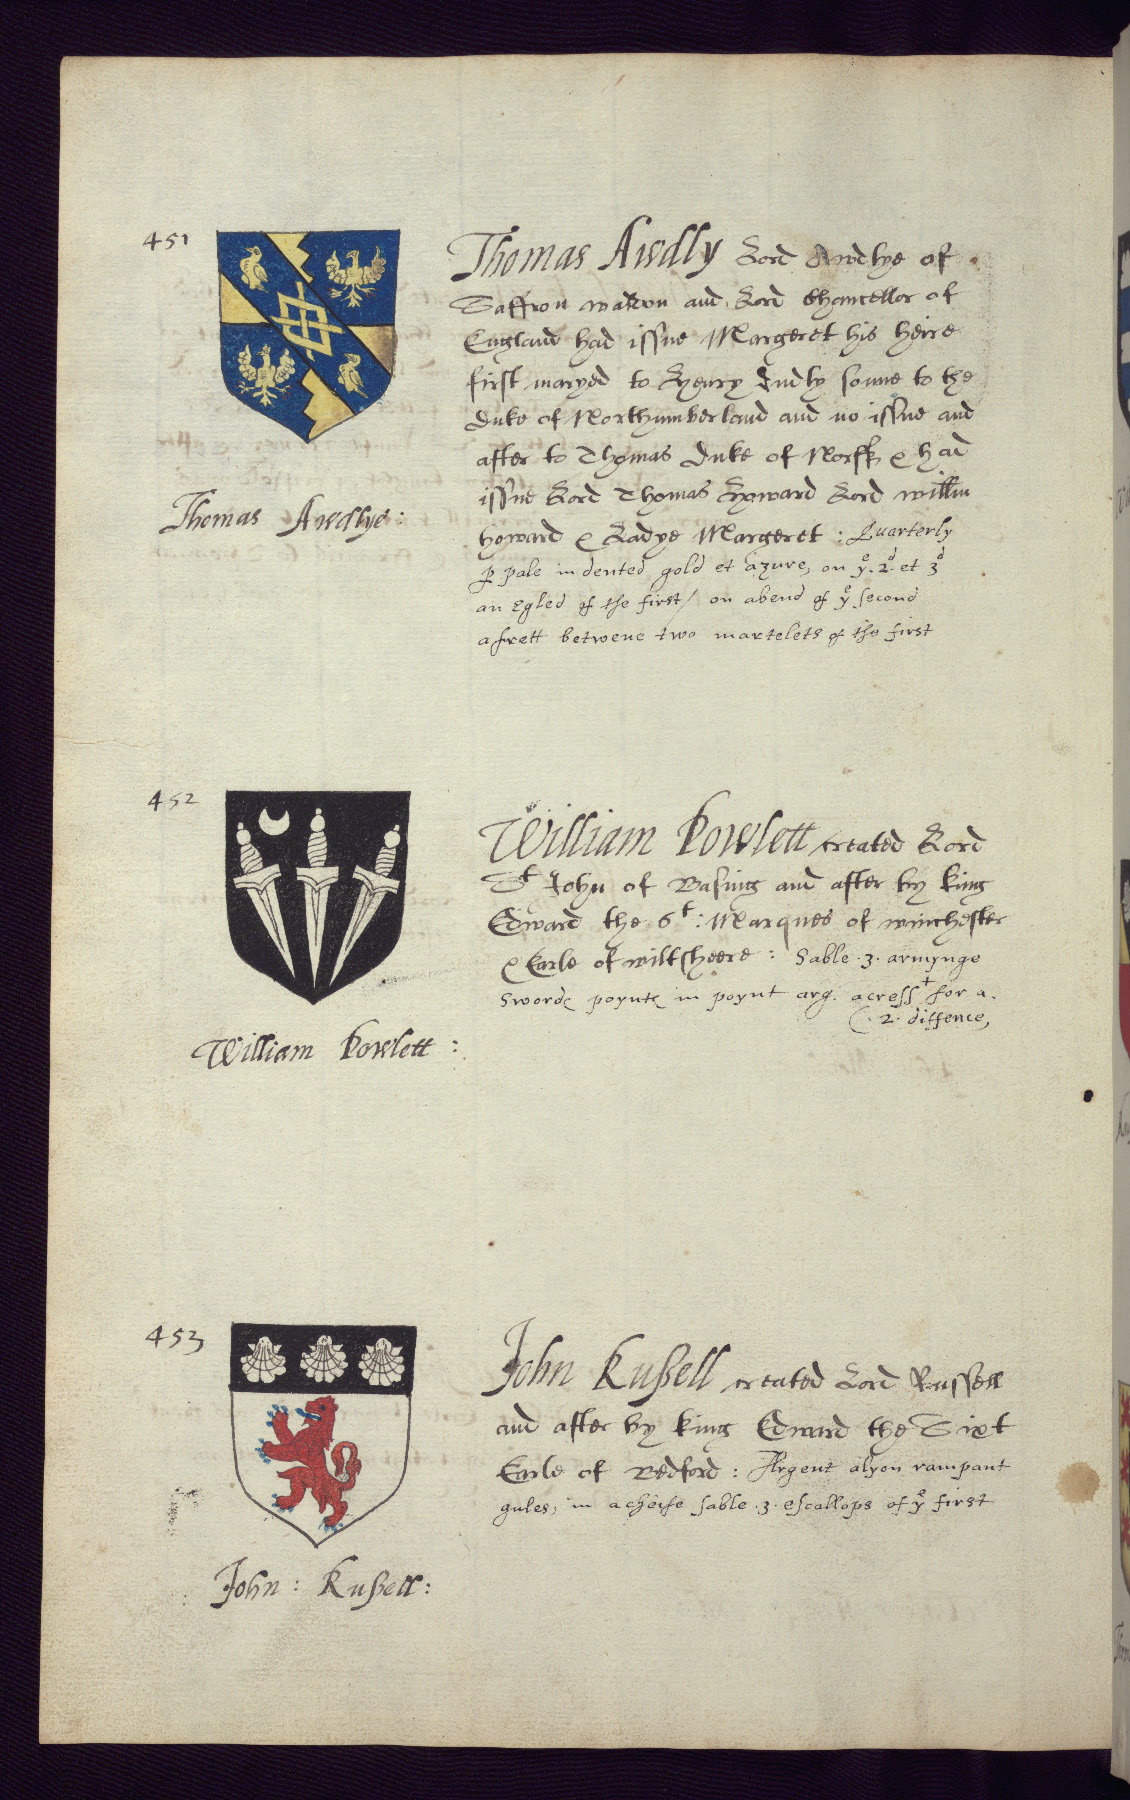 451
Thomas Awdly Lord Awdlye of
Saffron walden and Lord Chancellor of
England had issue Margeret his heire
first maryed to Henry Dudly sonne to the
Duke of Northumberland and no issue and
after to Thomas Duke of Norff. & had
issue Lord Thomas Howard Lord willm
howard & Ladye Margeret : Quarterly
p pale indented gold et azure, on yᵉ. 2ᵈ. et 3ᵈ
an Egled of the first/ on abend of yᵉ second
afrett betwene two martelets of the first
Thomas Awdlye :
452
William Powlett created Lord
Sᵗ John of Basing and after by king
Edward the 6ᵗ : Marques of winchester
& Earle of wiltsheere : Sable .3. armynge
Swordę poyntę in poynt arg. acress for a.
(. 2. diffence,
William Powlett :
453
John Russell created Lord Russell
and after by king Edward the Sixt
Earle of Bedford : Argent alyon rampant
gules, in acheife sable .3. escallops of yᵉ first
John : Russell :